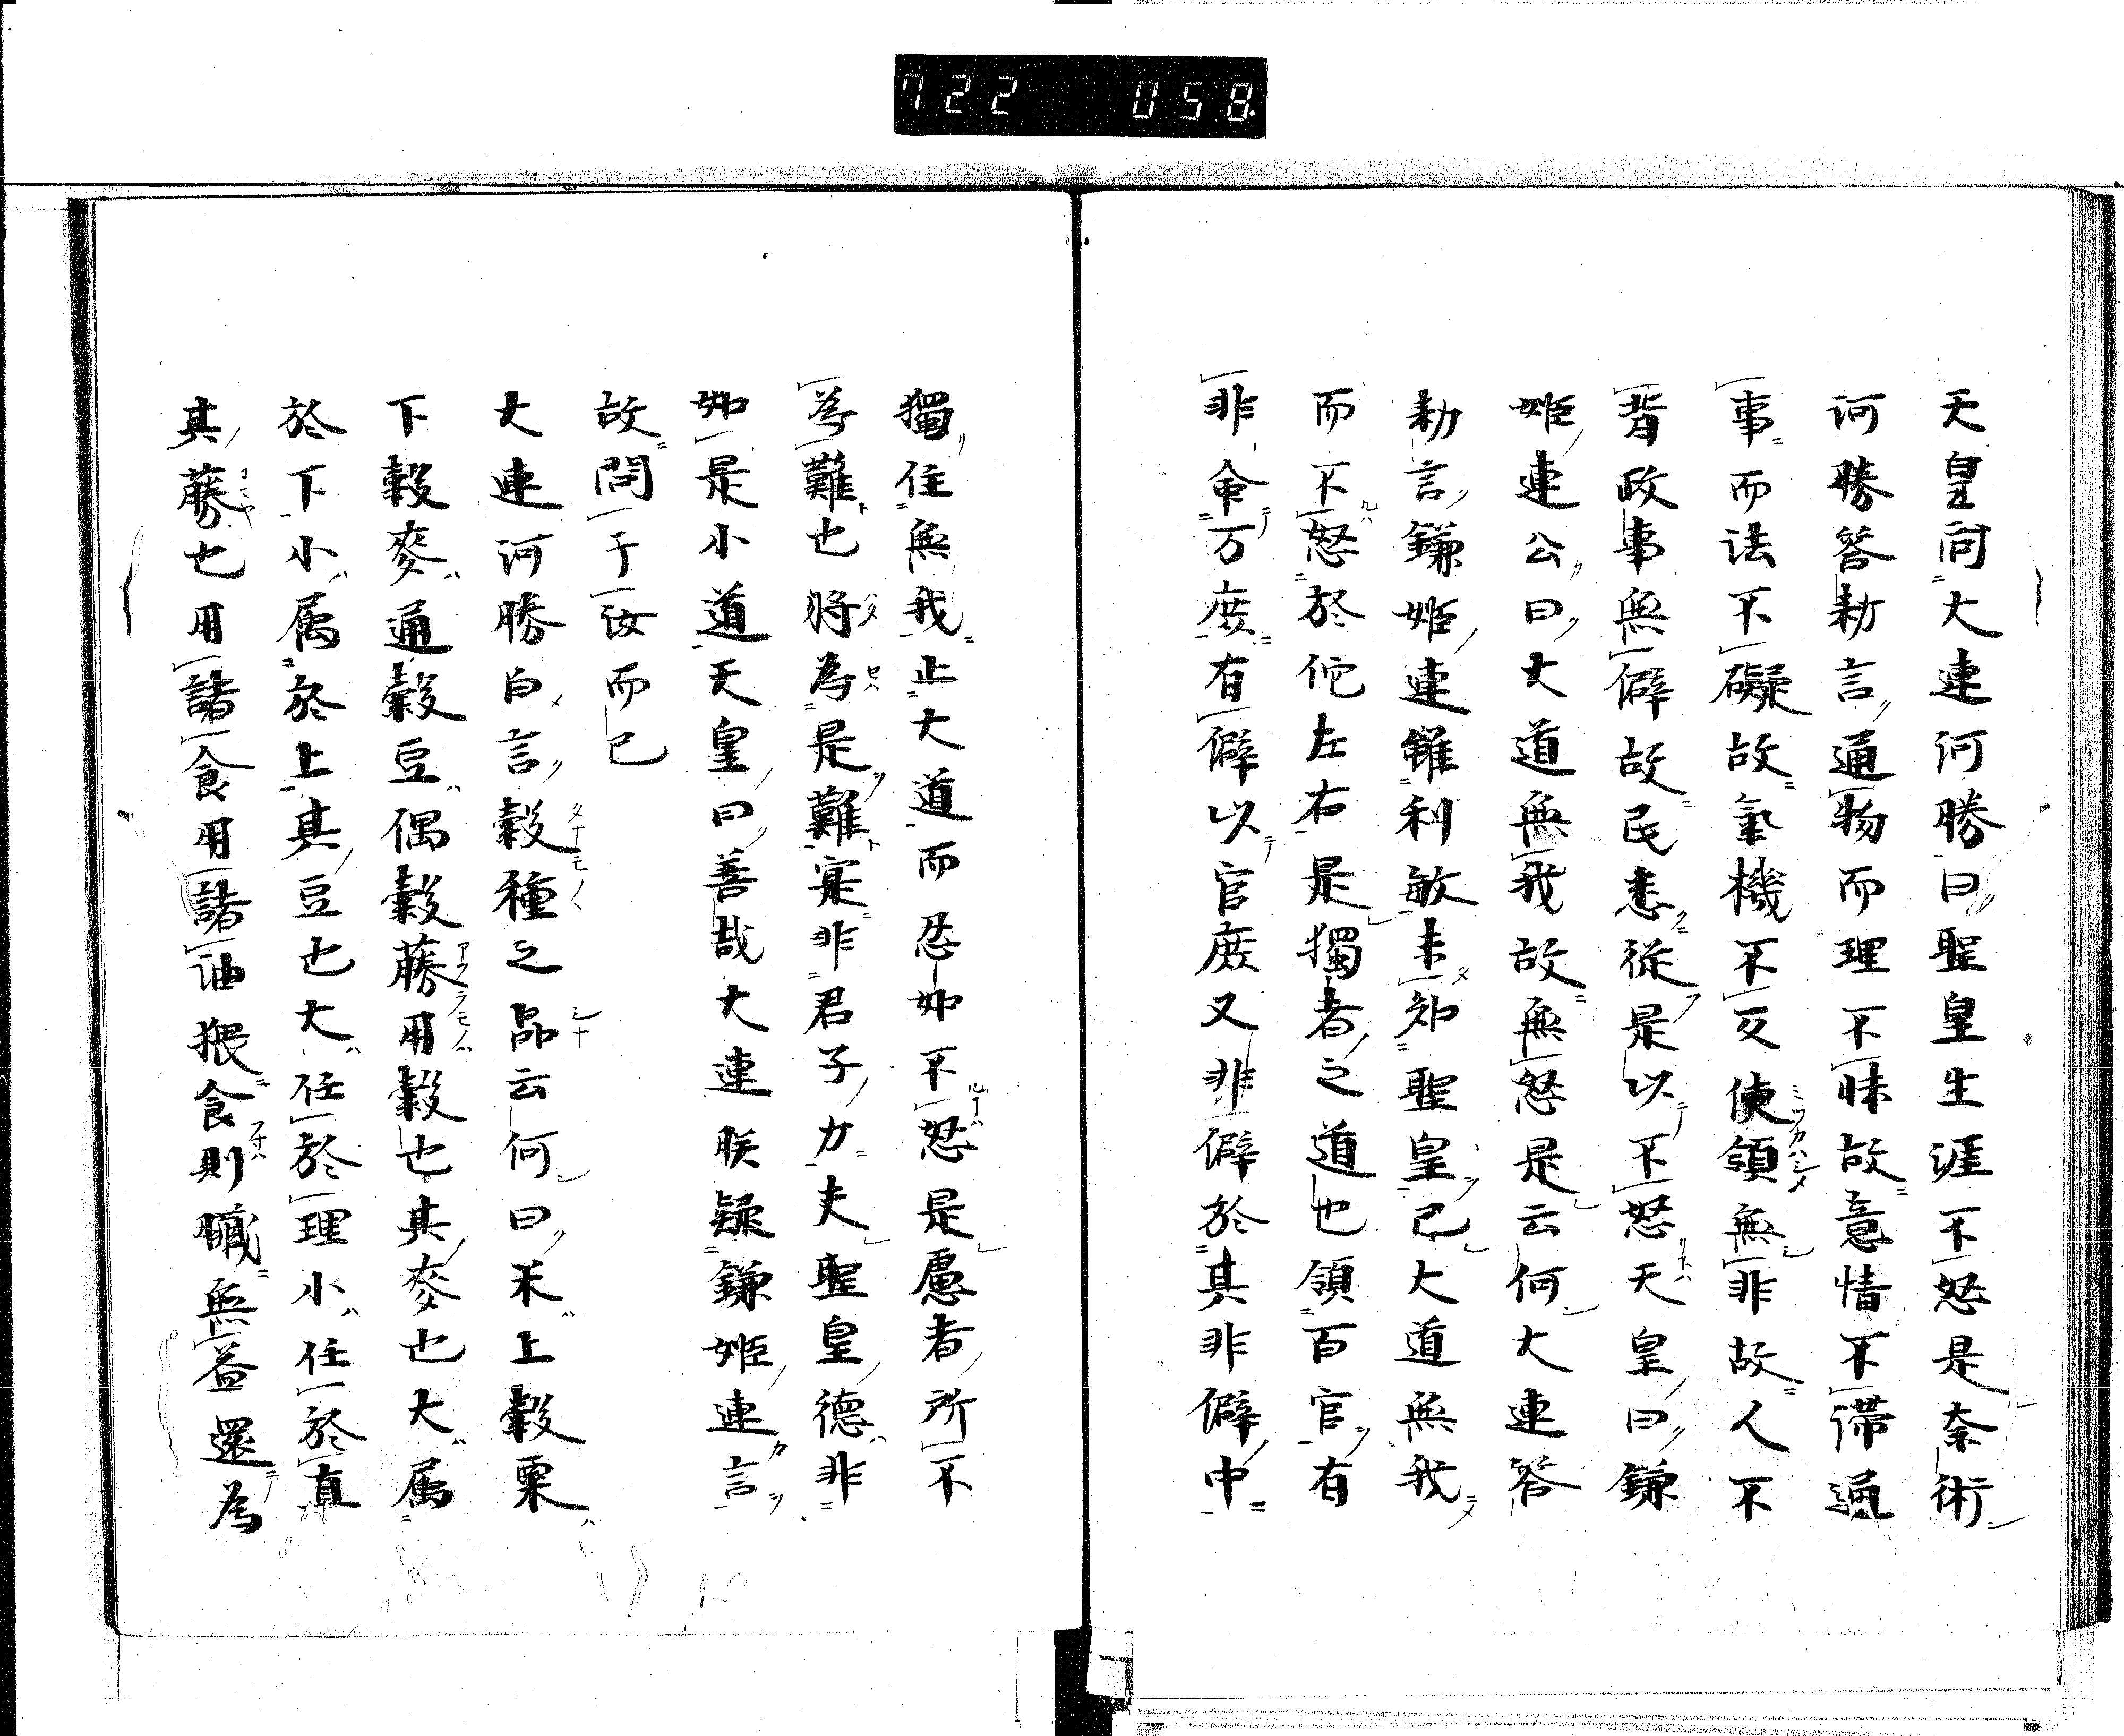 722 058
天皇問大連河勝曰聖皇生涯不怒是奈術
河勝答勅言通物而理不昧故意情不滞通
事而法不礙故氣機不反使領無非故人不
背政事無僻故民悉從是以不怒天皇曰鎌
姫連公曰大道無我故無怒是云何大連答
勅言鎌姫連雖利敏未知聖皇已大道無我
而不怒於佗左右是獨者之道也領百官有
非命万庶有僻以官庶又非僻於其非僻中
獨住無我止大道而忍如不怒是慮者所不
等難也將為是難寔非君子力夫聖皇德非
如是小道天皇曰善哉大連朕疑鎌姫連言
故問于汝而已
大連河勝白言穀種之品云何曰米上穀粟
下穀麥通穀豆偶穀藤用穀也其麥也大属
於下小属於上其豆也大任於理小任於直
其藤也用諸食用諸油猥食則臓無益還為